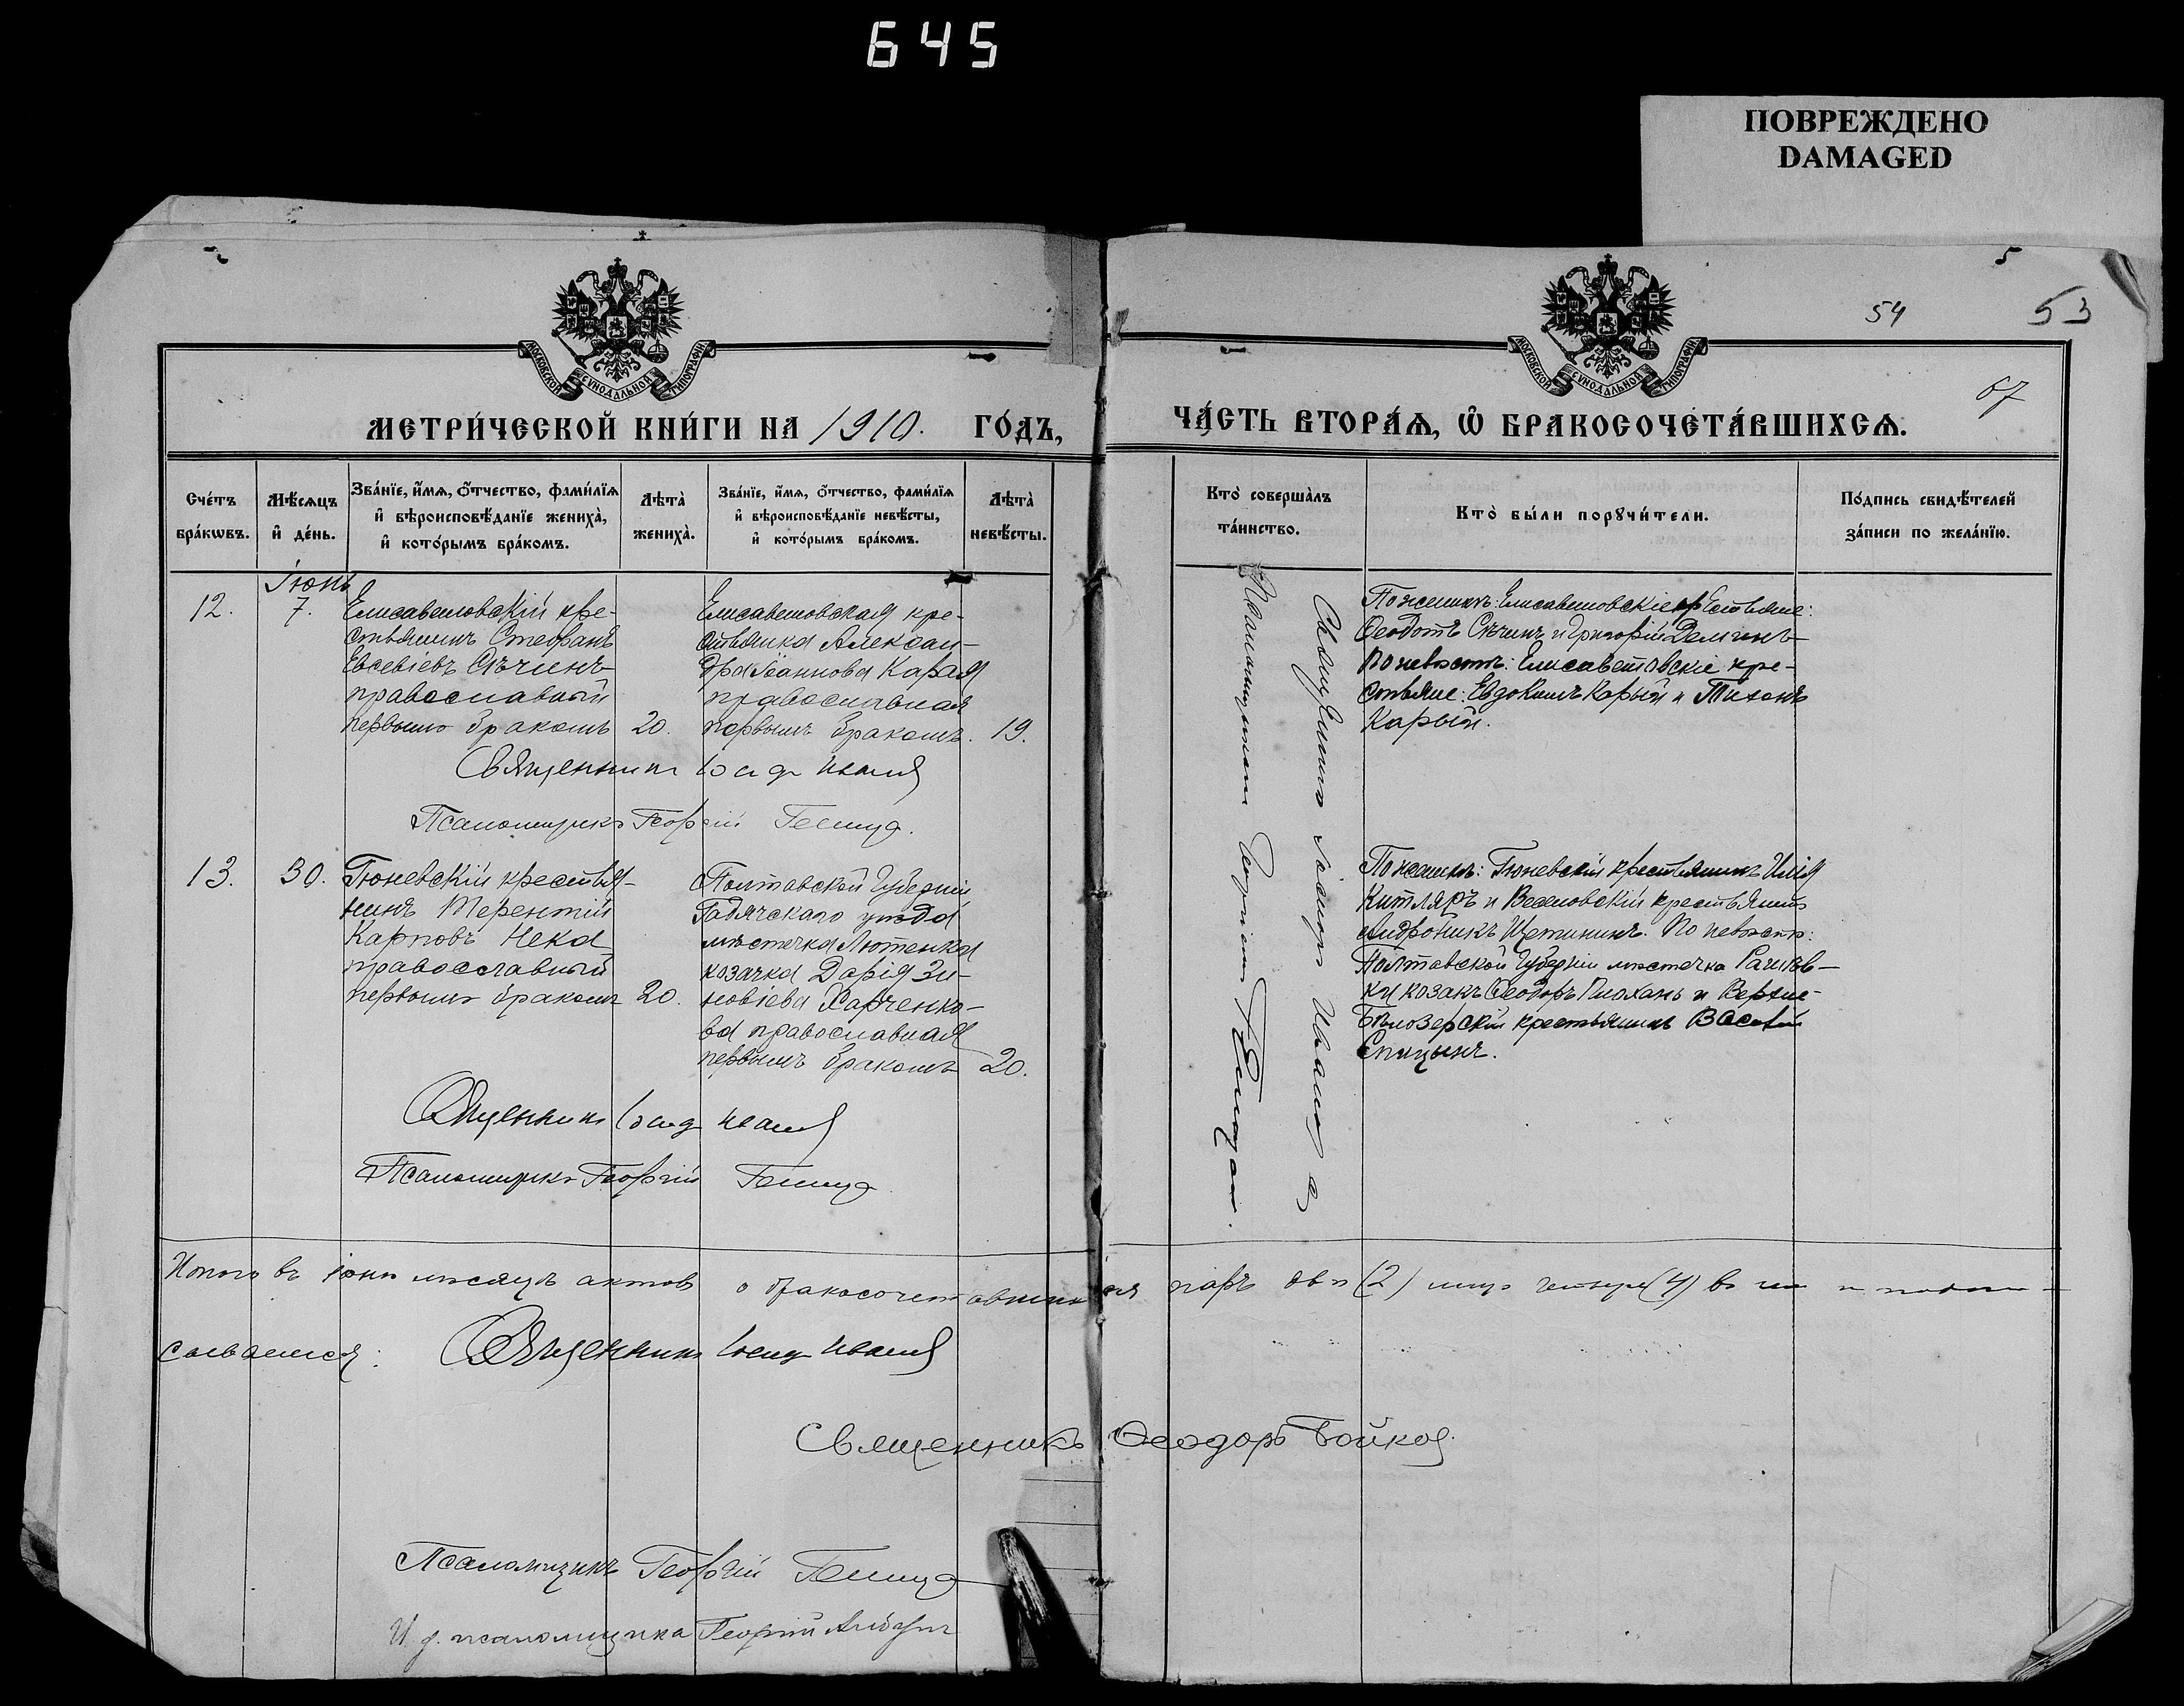 645
ПОВРЕЖДЕНО
DAMAGED
5
54
53
67
МОСКОВСКОЙ СѴНОДАЛЬНОЙ ТИПОГРАФІИ
МОСКОВСКОЙ СѴНОДАЛЬНОЙ ТИПОГРАФІИ
МЕТРИ́ЧЕСКОЙ КНИ́ГИ НА 1910. ГО́ДЪ,
ЧА́СТЬ ВТОРА́Ѧ, Ѽ БРАКОСОЧЕТА́ВШИХСѦ.
Сче́тъ
бра́кѡвъ.
Мѣ́сѧцъ
и҆ де́нь.
Зва́нїе, и҆́мѧ, ѻ҆́тчество, фами́лїѧ
и҆ вѣроисповѣ́данїе жениха̀,
и҆ кото́рымъ бра́комъ.
Лѣта̀
жениха̀.
Зва́нїе, и҆́мѧ, ѻ҆́тчество, фами́лїѧ
и҆ вѣроисповѣ́данїе невѣ́сты,
и҆ кото́рымъ бра́комъ.
Лѣта̀
невѣ́сты.
Кто̀ соверша́лъ
та́инство.
Кто̀ бы́ли порꙋчи́тели.
По́дпись свидѣ́телей
за́писи по жела́нїю.
Іюнь
12.
7.
Елисаветовскій кре-
стьянинъ Стефанъ
Евсевіевъ Сѣчинъ
православный
первымъ бракомъ
20.
Елисаветовская кре-
стьянка Алексан-
дра Іоаннова Карая
православная
первымъ бракомъ.
19.
По женихѣ: Елисаветовскіе крестьяне:
Ѳеодотъ Сѣчинъ и Григорій Деминъ
По невѣстѣ: Елисаветовскіе кре-
стьяне: Евдокимъ Карый и Тихонъ
Карый.
Священникъ
Псаломщикъ Георгій
13.
30.
Гюневскій крестья-
нинъ Терентій
Карповъ Нека
православный
первымъ бракомъ
20.
Полтавской Губерніи
Гадячскаго уѣзда
мѣстечка Лютенка
козачка Дарія Зи-
новіева Харченко-
ва православная
первымъ бракомъ
20.
По женихѣ: Гюневскій крестьянинъ Илія
Китляръ и Веселовскій крестьянинъ
Андроникъ Щетининъ. По невѣстѣ:
Полтавской Губерніи мѣстечка Рашев-
ки козакъ Ѳеодоръ Плахань и Верхне-
Бѣлозерскій крестьянинъ Василій
Спицынъ.
Священникъ
Псаломщикъ Георгій
Итого въ іюнѣ мѣсяцѣ актовъ о бракосочетавшихся паръ двѣ (2) лицъ четыре (4) въ чемъ и подпи-
сываемся:
Священникъ
Священникъ Ѳеодоръ Бойко
Псаломщикъ Георгій
И. д. псаломщика Георгій